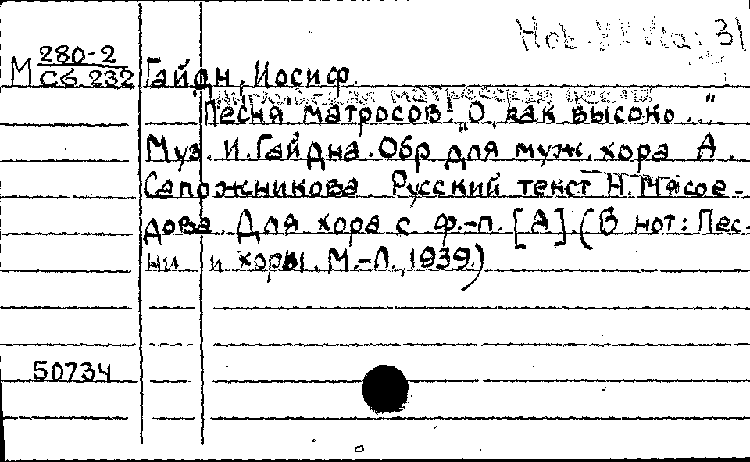 М 280-2
Сб. 232
Гайдн, Иосиф.
Песня матросов: "О, как высоко..."
Муз. И. Гайдна. Обр. для муж. хора А.
Сапожникова. Русский текст Н. Мясое-
дова. Для хора с ф.-п. [А]. (В нот: Пес-
ни и хоры. М.-Л., 1939.)
50734